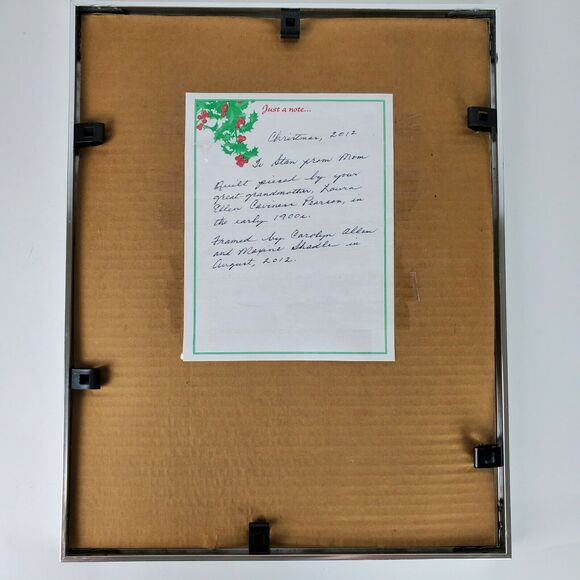 Just a note...
Christmas, 2012
To Stan from Mom
Quilt pieced by your
great grandmother, Laura
Ellen Caviness Pearson, in
the early 1900s.
Framed by Carolyn Allen
and Maxine Shadle in
August, 2012.